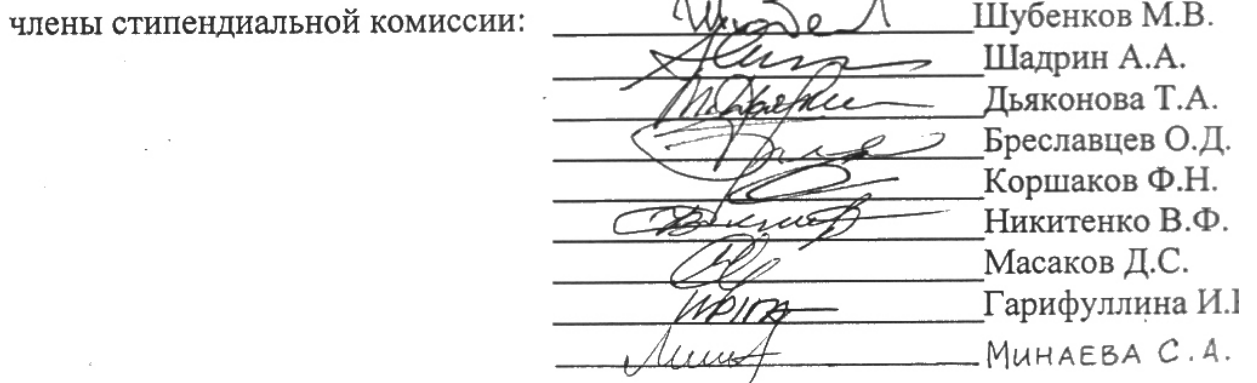 члены стипендиальной комиссии: Шубенков М.В.
Шадрин А.А.
Дьяконова Т.А.
Бреславцев О.Д.
Коршаков Ф.Н.
Никитенко В.Ф.
Масаков Д.С.
Гарифуллина И.
МИНАЕВА С.А.